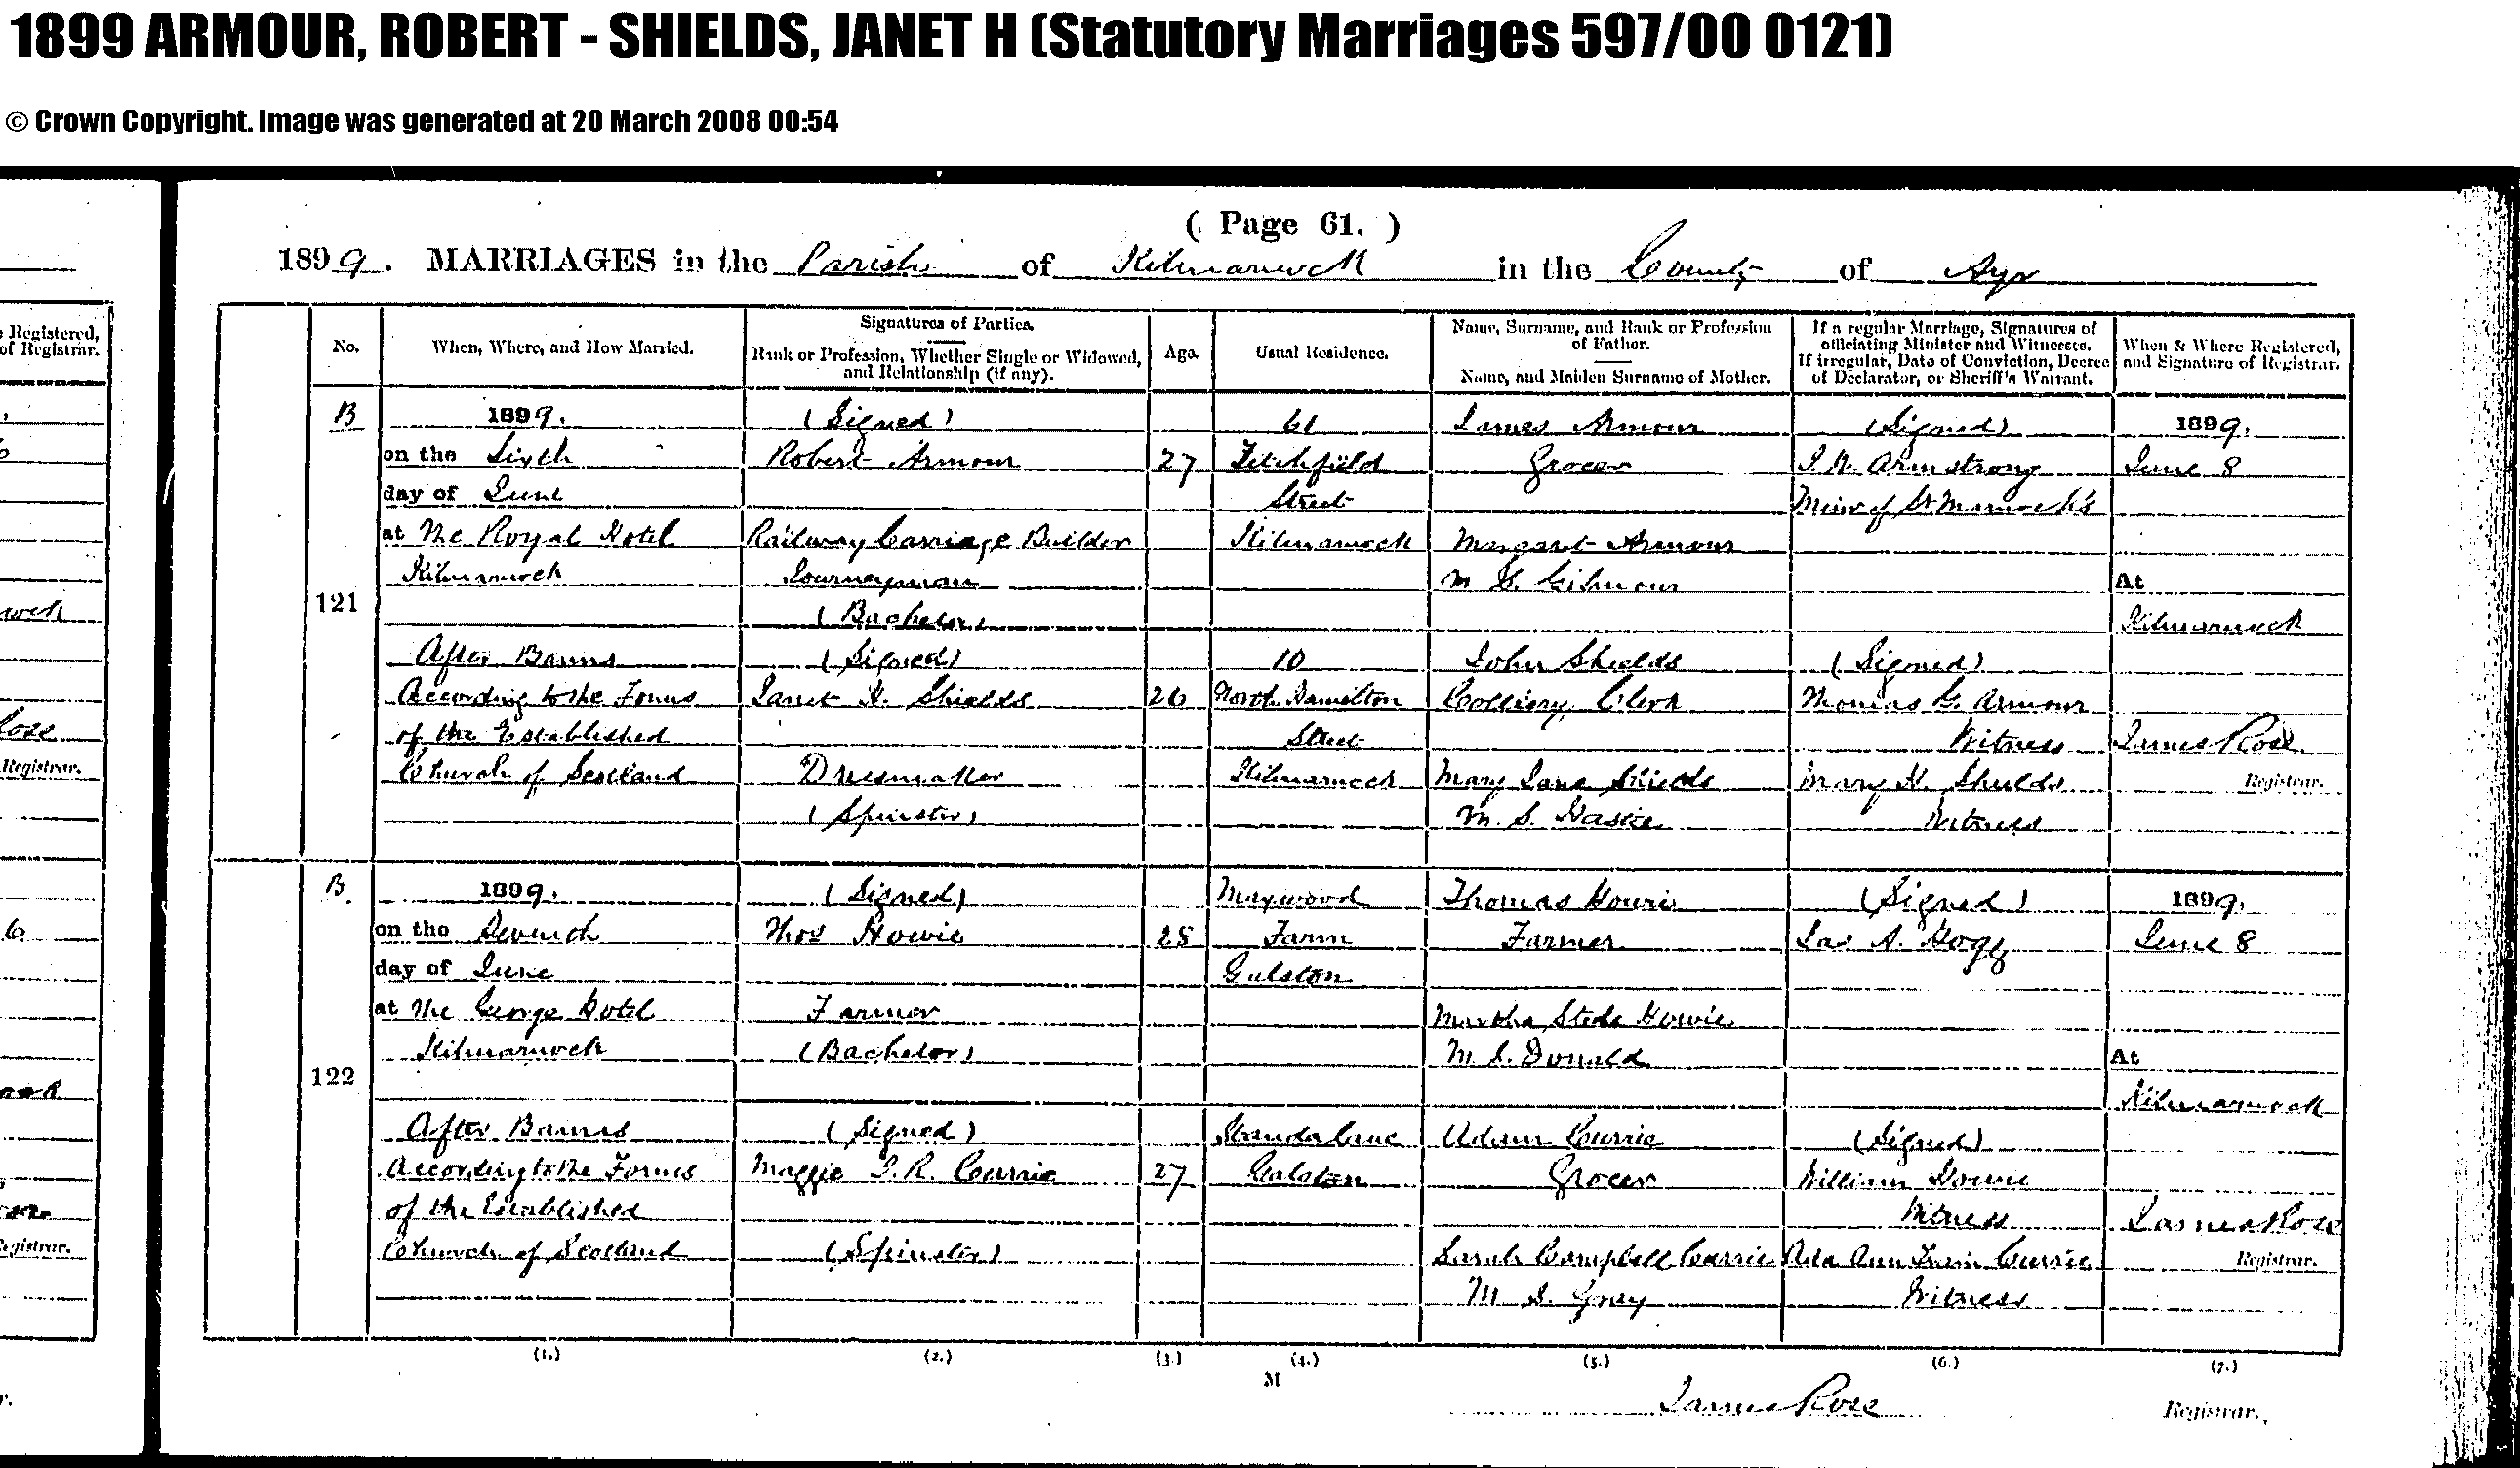 1899 ARMOUR, ROBERT - SHIELDS, JANET H (Statutory Marriages 597/00 0121)
© Crown Copyright. Image was generated at 20 March 2008 00:54
( Page 61. )
1899. MARRIAGES in the Parish of Kilmarnock in the County of Ayr
Registered,
of Registrar.
Registrar.
Registrar.
No.
When, Where, and How Married.
Signatures of Parties.
Rank or Profession, Whether Single or Widowed,
and Relationship (if any).
Age.
Usual Residence.
Name, Surname, and Rank or Profession
of Father.
Name, and Maiden Surname of Mother.
If a regular Marriage, Signatures of
officiating Minister and Witnesses.
If irregular, Date of Conviction, Decree
of Declarator, or Sheriff's Warrant.
When & Where Registered,
and Signature of Registrar.
B
121
1899.
on the Sixth
day of June
at The Royal Hotel
Kilmarnock
After Banns
According to the Forms
of the Established
Church of Scotland
(Signed)
Robert Armour
Railway Carriage Builder
Journeyman
(Bachelor)
(Signed)
Janet H. Shields
Dressmaker
(Spinster)
27
26
61
Titchfield
Street
Kilmarnock
10
North Hamilton
Street
Kilmarnock
James Armour
Grocer
Margaret Armour
M. S. Gilmour
John Shields
Colliery Clerk
Mary Jane Shields
M. S. Haskie
(Signed)
J. W. Armstrong
Min of St Marnock's
(Signed)
Thomas G. Armour
Witness
Mary H. Shields
Witness
1899.
June 8
At
Kilmarnock
James Rose
Registrar.
B
122
1899.
on the Seventh
day of June
at The George Hotel
Kilmarnock
After Banns
According to the Forms
of the Established
Church of Scotland
(Signed)
Thos Howie
Farmer
(Bachelor)
(Signed)
Maggie J. R. Currie
(Spinster)
28
27
Maxwood
Farm
Galston
Galston
Thomas Howie
Farmer
Martha Steele Howie
M. S. Donald
Adam Currie
Grocer
Sarah Campbell Currie
M. S. Gray
(Signed)
Jas A. Hogg
(Signed)
William Howie
Witness
Ada Ann Train Currie
Witness
1899.
June 8
At
Kilmarnock
James Rose
Registrar.
(1.) (2.) (3.) (4.) (5.) (6.) (7.)
M
James Rose Registrar.